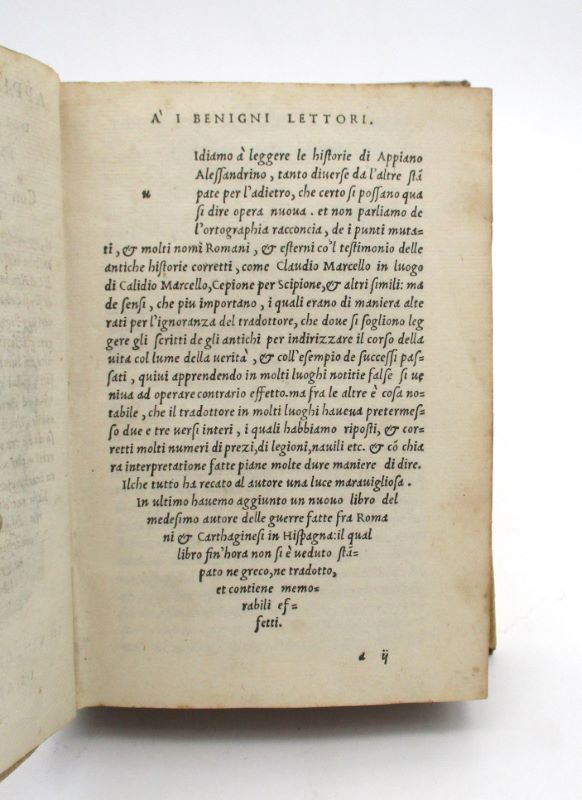 A' I BENIGNI LETTORI.
u
Idiamo à leggere le historie di Appiano
Alessandrino, tanto diuerse da l'altre stã
pate per l'adietro, che certo si possano qua
si dire opera nuoua. et non parliamo de
l'ortographia racconcia, de i punti muta-
ti, & molti nomi Romani, & esterni co'l testimonio delle
antiche historie corretti, come Claudio Marcello in luogo
di Calidio Marcello,Cepione per Scipione,& altri simili: ma
de sensi, che piu importano, i quali erano di maniera alte
rati per l'ignoranza del tradottore, che doue si sogliono leg
gere gli scritti de gli antichi per indirizzare il corso della
uita col lume della uerità, & coll'esempio de successi pas-
sati, quiui apprendendo in molti luoghi notitie false si ue
niua ad operare contrario effetto.ma fra le altre è cosa no-
tabile, che il tradottore in molti luoghi haueua pretermes-
so due e tre uersi interi, i quali habbiamo riposti, & cor-
retti molti numeri di prezi,di legioni,nauili etc. & cõ chia
ra interpretatione fatte piane molte dure maniere di dire.
Ilche tutto ha recato al autore una luce marauigliosa.
In ultimo hauemo aggiunto un nuouo libro del
medesimo autore delle guerre fatte fra Roma
ni & Carthaginesi in Hispagna:il qual
libro fin'hora non si è ueduto stã-
pato ne greco,ne tradotto,
et contiene memo-
rabili ef-
fetti.
a ij